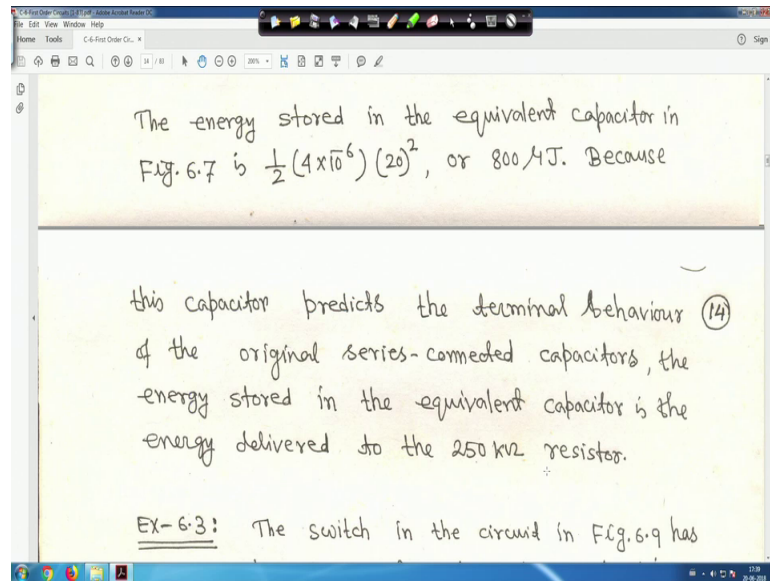 C-6-First Order Circuits [1-83].pdf - Adobe Acrobat Reader DC
File Edit View Window Help
Home Tools C-6-First Order Cir... × Sign
14 / 83 200%
The energy stored in the equivalent capacitor in
Fig. 6.7 is 1/2 (4×10^-6) (20)^2, or 800 μJ. Because
this capacitor predicts the terminal behaviour 14
of the original series-connected capacitors, the
energy stored in the equivalent capacitor is the
energy delivered to the 250 kΩ resistor.
EX-6.3: The switch in the circuit in Fig. 6.9 has
17:39